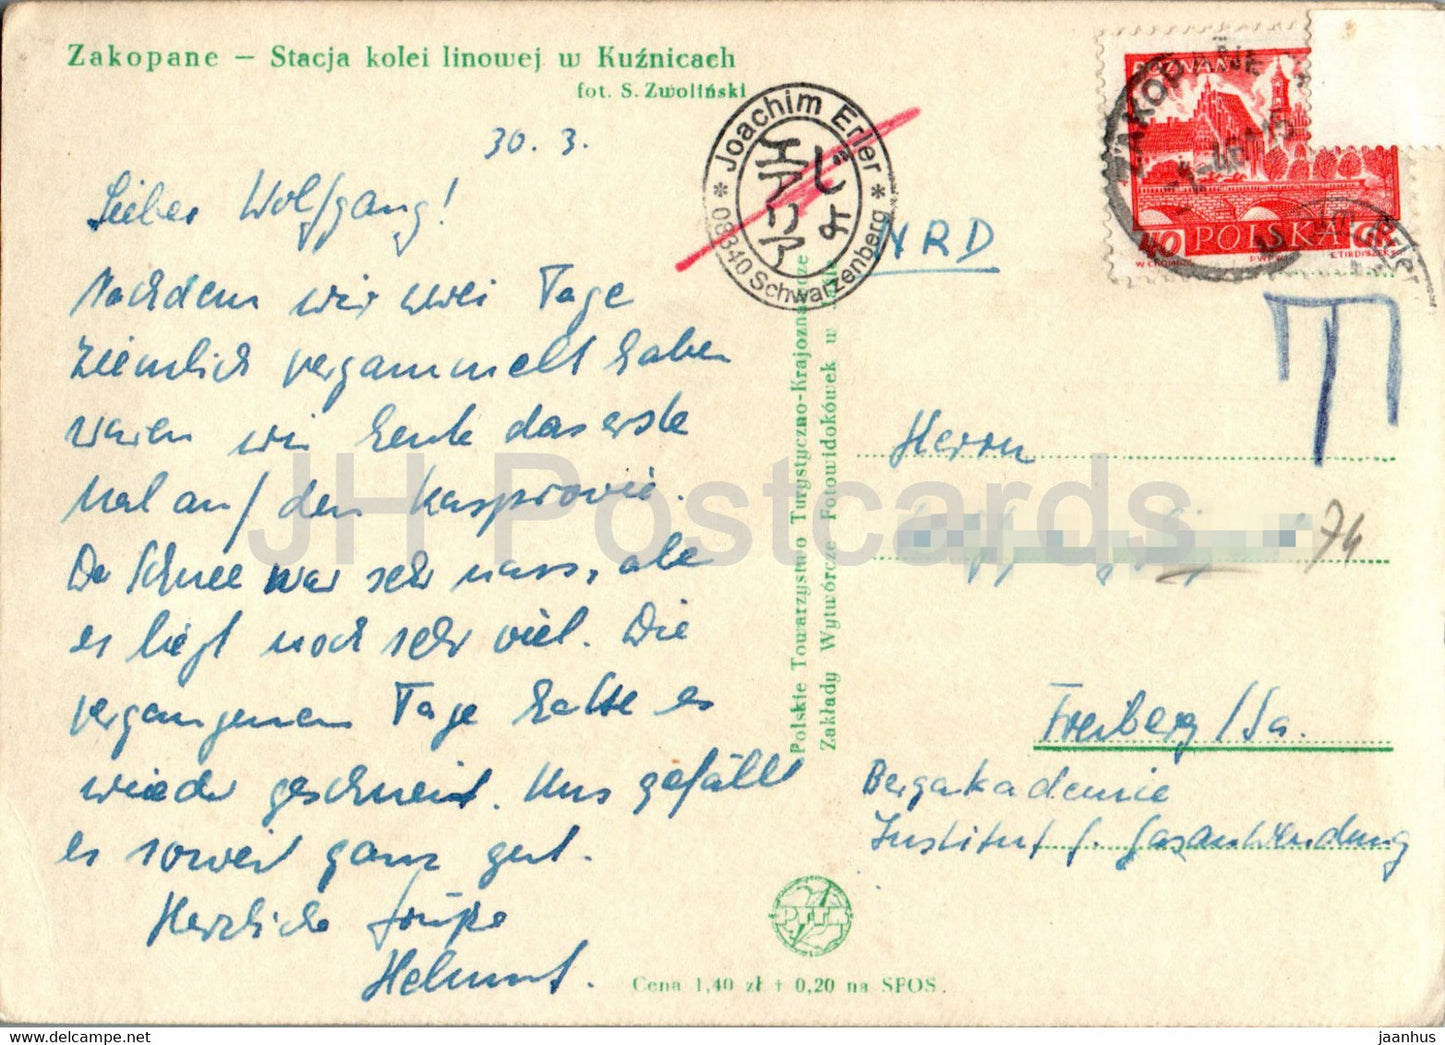 Zakopane – Stacja kolei linowej w Kuźnicach
fot. S. Zwoliński
30. 3.
Lieber Wolfgang!
Nachdem wir zwei Tage
ziemlich vergammelt haben
waren wir heute das erste
Mal auf den Kasprowie.
Der Schnee war sehr nass, aber
es liegt noch sehr viel. Die
vergangenen Tage hatte es
wieder geschneit. Uns gefällt
es soweit ganz gut.
Herzliche Grüße
Helmut.
Cena 1,40 zł + 0,20 na SFOS.
Polskie Towarzystwo Turystyczno-Krajoznawcze
Zakłady Wytwórcze Fotowidokówek w
PTTK
* Joachim Erler *
08340 Schwarzenberg
ZAKOPANE
POZNAŃ
40 POLSKA GR
Erler
NRD
Herrn
74
Freiberg/Sa.
Bergakademie
Institut f. Gasanwendung
JH Postcards
www.hippostcard.com/store/jh-postcards
jaanhus